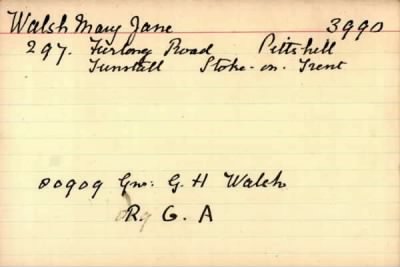 Walsh Mary Jane 3990
297. Furlong Road Pittshill
Tunstall Stoke-on-Trent
00909 Gnr: G. H Walsh
R G. A